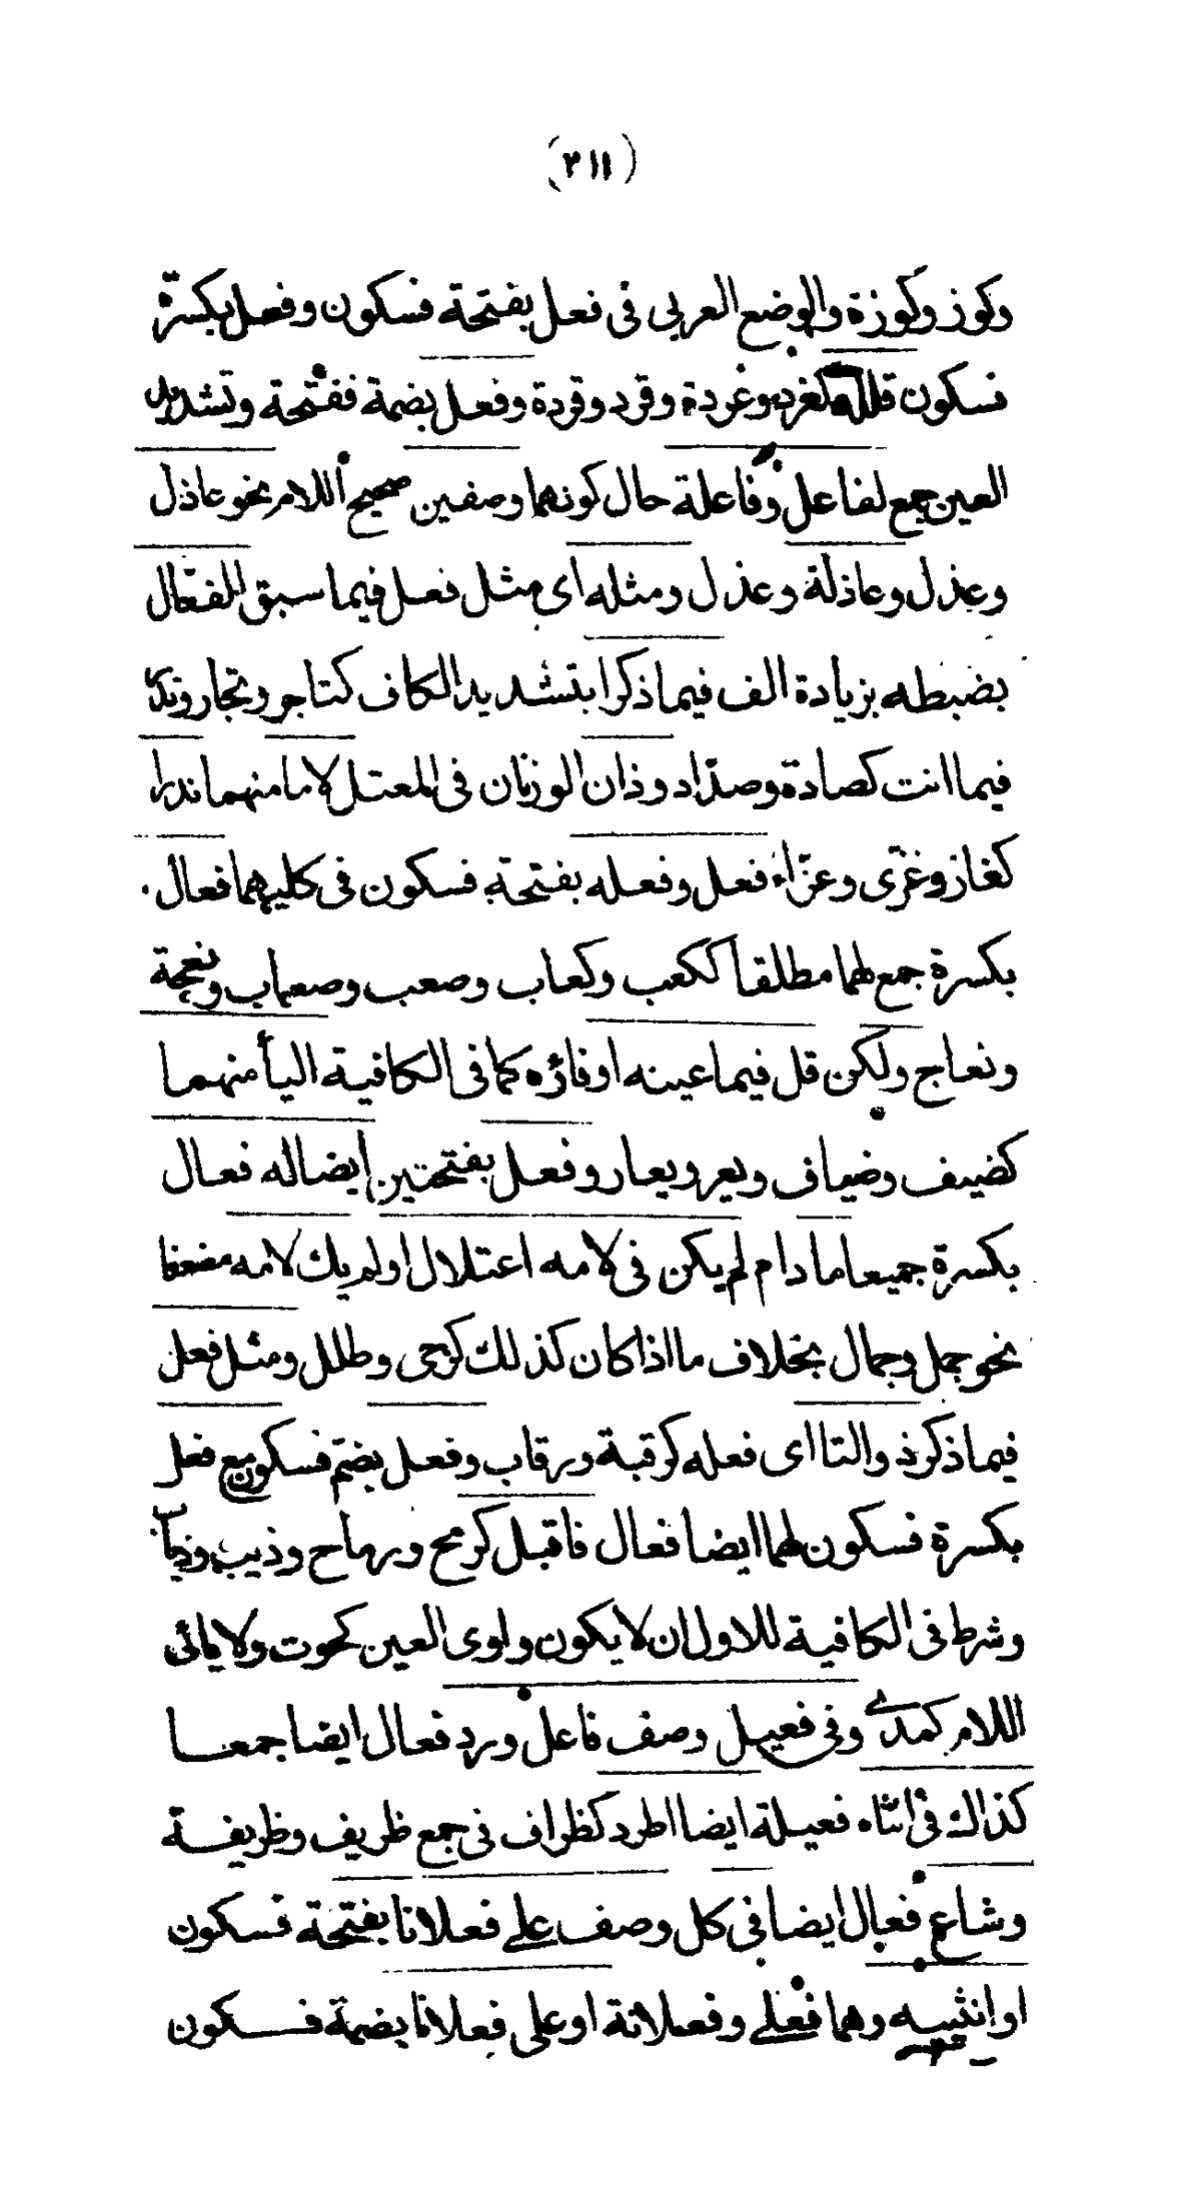 (٣١١)
وكوز وكوزة والوضع العربى فى فعل بفتحة فسكون وفعل بكسرة
فسكون قلله كغرد وغردة وقرد وقردة وفعل بضمة ففتحة وتشديد
العين جمع لفاعل وفاعلة حال كونهما وصفين صحيح اللام نحو عاذل
وعذل وعاذلة وعذل ومثله اى مثل فعل فيما سبق الفعّال
بضبطه بزيادة الف فيما ذكرا بتشديد الكاف كتاجر وتجار وندرا
فيما انت كصادة وصدّاد وذان الوزنان فى المعتل لاما منهما ندرا
كغاز وغزّى وعزّاء فعل وفعله بفتحة فسكون فى كليهما فعال .
بكسرة جمع لهما مطلقا ككعب وكعاب وصعب وصعاب ونعجة
ونعاج ولكن قل فيما عينه او فاؤه كما فى الكافية اليأ منهما
كضيف وضياف ويعر ويعار وفعل بفتحتين ايضا له فعال
بكسرة جميعا ما دام لم يكن فى لامه اعتلال او لم يك لامه مضعفا
نحو جمل وجمال بخلاف ما اذا كان كذلك كرحى وطلل ومثل فعل
فيما ذكر ذو التا اى فعله كرقبة ورقاب وفعل بضم فسكون مع فعل
بكسرة فسكون لهما ايضا فعال فاقبل كرمح ورماح وذيب وذياب
وشرط فى الكافية للاول ان لا يكون واوى العين كحوت ولا يائى
اللام كمدى وفى فعيل وصف فاعل ورد فعال ايضا جمعا
كذاك فى انثاه فعيلة ايضا اطرد كظراف فى جمع ظريف وظريفة
وشاع فعال ايضا فى كل وصف على فعلانا بفتحة فسكون
او انثييه وهما فعلى وفعلانة او على فعلانا بضمة فسكون